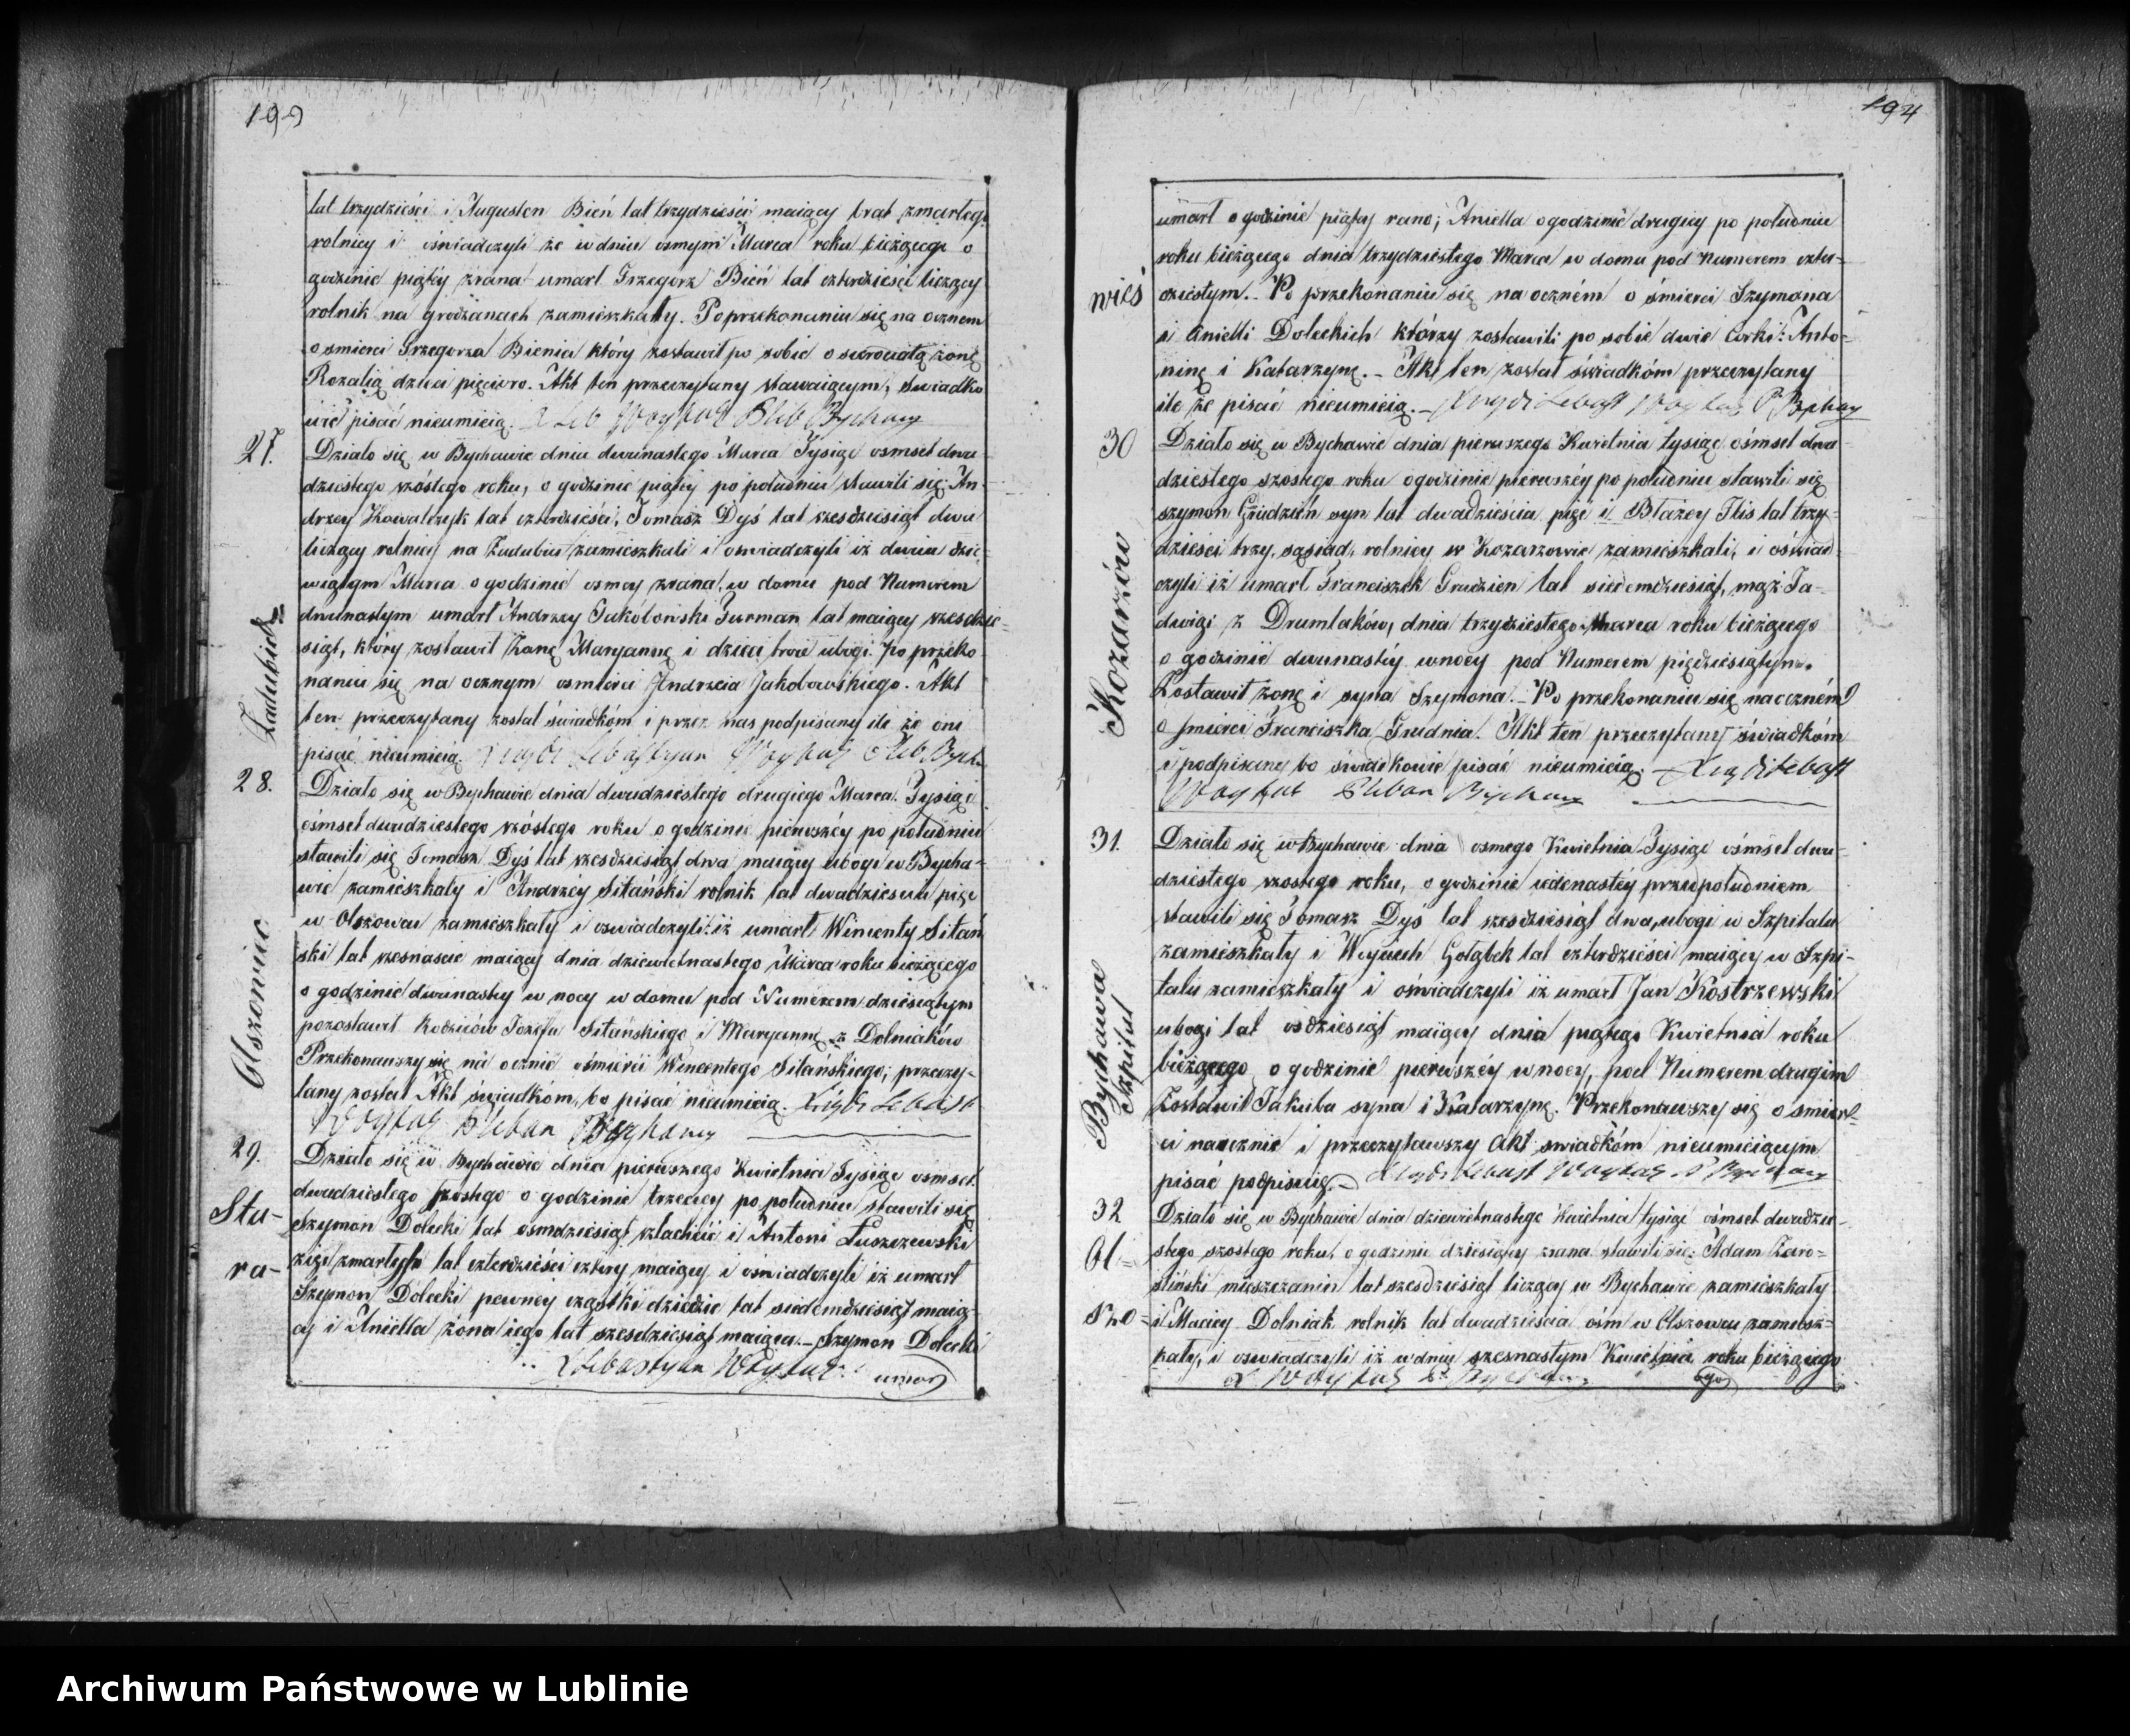 193
lat trzydzieści i Augusten Bień lat trzydzieści maiący brat zmarłego
rolnicy i oświadczyli że w dniu osmym Marca roku bieżącego o
godzinie piątéj zrana umarł Grzegorz Bień lat czterdzieści liczący
rolnik na grodzanach zamieszkały. Po przekonaniu się na ocznem
o smierci Grzegorza Bienia który zostawił po sobie osierociałą żonę
Rozalią dzieci pięcioro. Akt ten przeczytany stawaiącym, swiadko
wie pisać nieumieią.
27.
Zadubiec
Działo się w Bychawie dnia dwunastego Marca Tysiąc osmset dwu
dziestego szóstego roku, o godzinie piątey po południu stawili się An
drzey Kowalczyk lat czterdzieści, Tomasz Dyś lat szesdziesiąt dwa
liczący rolnicy na Zadubiu zamieszkali i oswiadczyli iż dnia dzie-
wiątym Marca o godzinie osmey zrana, w domu pod Numerem
dwunastym umarł Andrzey Jakóbowski Furman lat maiący szesdzie=
siąt, który zostawił Żonę Maryannę i dzieci troie ubogi. Po przeko
naniu się na ocznym osmierci Andrzeia Jakobowskiego. Akt
ten przeczytany został świadkóm i przez nas podpisany ile że oni
pisać nieumieią.
28.
Olszowiec
Działo się w Bychawie dnia dwudziestego drugiego Marca. Tysiąc
ośmset dwudziestego szóstego roku o godzinie pierwszéy po południu
stawili się Tomasz Dyś lat szesdziesiąt dwa maiący ubogi w Bycha-
wie zamieszkały i Andrzéy Sitański rolnik lat dwadziescia pięc
w Olszowcu zamieszkały i oswiadczyli: iż umarł Wincenty Sitań
ski lat szesnascie maiący dnia dziewietnastego Marca roku bieżącego
o godzinie dwunastey w nocy w domu pod Numerem dziesiątym
pozostawił Rodziców Jozefa Sitańskiego i Maryannę z Dolniaków
Przekonawszy się na ocznie ośmierci Wincentego Sitańskiego, przeczy-
tany został Akt świadkóm, bo pisać nieumieią. Xiądz Sebast
Woytas Pleban Bychawy
29.
Sta-
ra-
Działo się w Bychawie dnia pierwszego Kwietnia Tysiąc osmset
dwudziestego szostego o godzinie trzeciey po południu stawili się
Szymon Dolecki lat osmdziesiąt szlachcic i Antoni Łuszczewski
zięć zmarłych lat czterdzieści cztery maiący i oświadczyli iż umarł
Szymon Dolecki pewney cząstki dziedzic lat siedemdziesiąt maią-
cy i Aniella żona iego lat szesdziesiąt maiąca. Szymon Dolecki
X Sebastyan Woytas umar
194
wieś
umarł o godzinie piątey rano; Aniella o godzinie drugiey po południu
roku bieżącego dnia trzydziestego Marca w domu pod Numerem czter=
dziestym. Po przekonaniu się na oczném o śmierci Szymona
i Anielli Doleckich którzy zostawili po sobie dwie Córki: Anto=
ninę i Katarzynę. Akt ten został świadkóm przeczytany
ile że pisać nieumieią. Xiądz Sebast Woytas P Bychawy
30
Kozarzów
Działo się w Bychawie dnia pierwszego Kwietnia tysiąc ośmset dwu
dziestego szostego roku o godzinie pierwszéy po południu stawili się
szymon Grudzień syn lat dwadzieścia pięć i Błażey Flis lat trzy-
dzieści trzy, sąsiad, rolnicy w Kozarzowie zamieszkali, i oświad
czyli iż umarł Franciszek Grudzien lat siedemdziesiąt, mąż Ja-
dwigi z Drumlaków, dnia trzydziestego Marca roku bieżącego
o godzinie dwunastéy w nocy pod Numerem pięćdziesiątym.
Zostawił żonę i syna Szymona. Po przekonaniu się na oczném
o smierci Franciszka Grudnia. Akt ten przeczytany świadkóm
i podpisany bo świadkowie pisać nieumieią. Xiądz Sebast
Woytas Pleban Bychawy
31.
Bychawa
Szpital
Działo się w Bychawie dnia osmego Kwietnia Tysiąc ośmset dwu-
dziestego szostego roku, o godzinie iedenastéy przed południem
stawili się Tomasz Dyś lat szesdziesiąt dwa, ubogi w Szpitalu
zamieszkały i Woyciech Gołąbek lat czterdzieści maiący w Szpi-
talu zamieszkały i oświadczyli iż umarł Jan Kostrzewski
ubogi lat osdziesiąt maiący dnia piątego Kwietnia roku
bieżącego o godzinie pierwszéy w nocy, pod Numerem drugim
Zostawił Jakuba syna i Katarzynę. Przekonawszy się o smier-
ci naocznie i przeczytawszy Akt swiadkóm nieumieiącym
pisać podpisuię. Xiądz Sebast Woytas P Bychawy
32
Ol=
szo=
Działo się w Bychawie dnia dziewietnastego Kwietnia tysiąc ośmset dwudzie-
stego szostego roku, o godzinie dziesiątey zrana stawili się: Adam Zaro=
sliński mieszczanin lat szesdziesiąt liczący w Bychawie zamieszkały
i Maciey Dolniak rolnik lat dwadzieścia ośm w Olszowcu zamiesz=
kały, i oswiadczyli iż w dniu szesnastym Kwietnia roku bieżącego
X Woytas P. Bychawy
Archiwum Państwowe w Lublinie